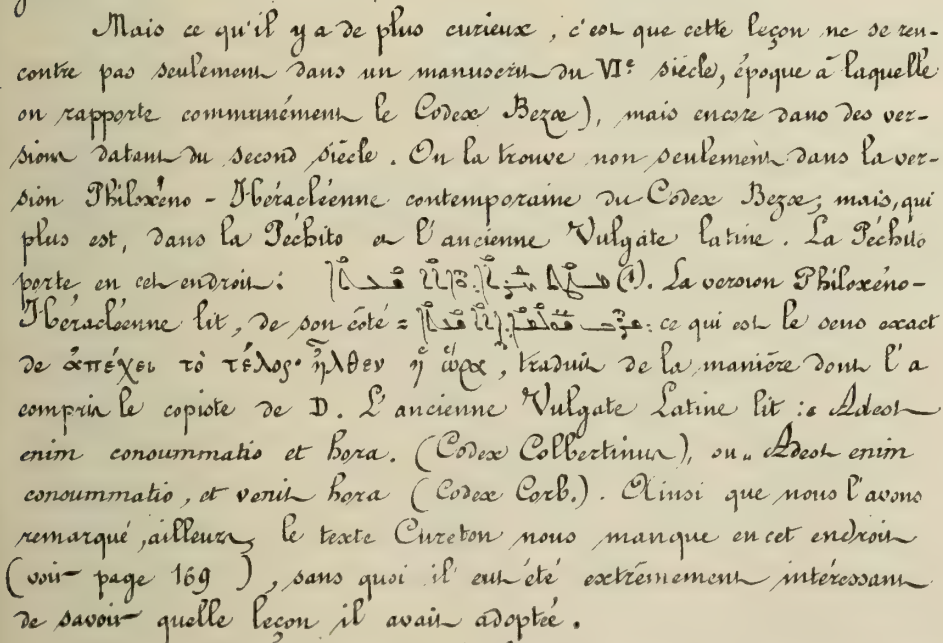 Mais ce qu'il y a de plus curieux, c'est que cette leçon ne se ren-
contre pas seulement dans un manuscrit du VIe siècle, époque à laquelle
on rapporte communément le Codex Bezæ), mais encore dans des ver-
sions datant du second siècle. On la trouve non seulement dans la ver-
sion Philoxéno-Héracléenne contemporaine du Codex Bezæ; mais, qui
plus est, dans la Péchito et l'ancienne Vulgate latine. La Péchito
porte en cet endroit: (1). La version Philoxéno-
Héracléenne lit, de son côté = : ce qui est le sens exact
de ἀπέχει τὸ τέλος· ἦλθεν ἡ ὥρα, traduit de la manière dont l'a
compris le copiste de D. L'ancienne Vulgate Latine lit : « Adest
enim consummatio et hora. (Codex Colbertinus), ou „ Adest enim
consummatio, et venit hora (Codex Corb.). Ainsi que nous l'avons
remarqué, ailleurs, le texte Cureton nous manque en cet endroit
(voir page 169 ), sans quoi il eut été extrêmement intéressant
de savoir quelle leçon il avait adoptée.